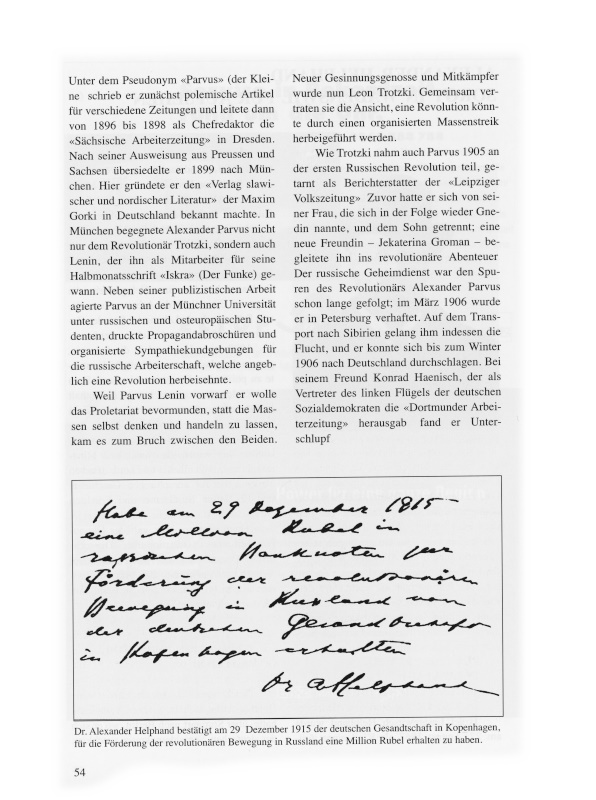 Unter dem Pseudonym «Parvus» (der Klei-
ne schrieb er zunächst polemische Artikel
für verschiedene Zeitungen und leitete dann
von 1896 bis 1898 als Chefredaktor die
«Sächsische Arbeiterzeitung» in Dresden.
Nach seiner Ausweisung aus Preussen und
Sachsen übersiedelte er 1899 nach Mün-
chen. Hier gründete er den «Verlag slawi-
scher und nordischer Literatur» der Maxim
Gorki in Deutschland bekannt machte. In
München begegnete Alexander Parvus nicht
nur dem Revolutionär Trotzki, sondern auch
Lenin, der ihn als Mitarbeiter für seine
Halbmonatsschrift «Iskra» (Der Funke) ge-
wann. Neben seiner publizistischen Arbeit
agierte Parvus an der Münchner Universität
unter russischen und osteuropäischen Stu-
denten, druckte Propagandabroschüren und
organisierte Sympathiekundgebungen für
die russische Arbeiterschaft, welche angeb-
lich eine Revolution herbeisehnte.
Weil Parvus Lenin vorwarf er wolle
das Proletariat bevormunden, statt die Mas-
sen selbst denken und handeln zu lassen,
kam es zum Bruch zwischen den Beiden.
Neuer Gesinnungsgenosse und Mitkämpfer
wurde nun Leon Trotzki. Gemeinsam ver-
traten sie die Ansicht, eine Revolution könn-
te durch einen organisierten Massenstreik
herbeigeführt werden.
Wie Trotzki nahm auch Parvus 1905 an
der ersten Russischen Revolution teil, ge-
tarnt als Berichterstatter der «Leipziger
Volkszeitung» Zuvor hatte er sich von sei-
ner Frau, die sich in der Folge wieder Gne-
din nannte, und dem Sohn getrennt; eine
neue Freundin – Jekaterina Groman – be-
gleitete ihn ins revolutionäre Abenteuer
Der russische Geheimdienst war den Spu-
ren des Revolutionärs Alexander Parvus
schon lange gefolgt; im März 1906 wurde
er in Petersburg verhaftet. Auf dem Trans-
port nach Sibirien gelang ihm indessen die
Flucht, und er konnte sich bis zum Winter
1906 nach Deutschland durchschlagen. Bei
seinem Freund Konrad Haenisch, der als
Vertreter des linken Flügels der deutschen
Sozialdemokraten die «Dortmunder Arbei-
terzeitung» herausgab fand er Unter-
schlupf
Habe am 29 Dezember 1915
eine Million Rubel in
russischen Banknoten zur
Förderung der revolutionären
Bewegung in Russland von
der deutschen Gesandtschaft
in Kopenhagen erhalten
Dr A Helphand
Dr. Alexander Helphand bestätigt am 29 Dezember 1915 der deutschen Gesandtschaft in Kopenhagen,
für die Förderung der revolutionären Bewegung in Russland eine Million Rubel erhalten zu haben.
54